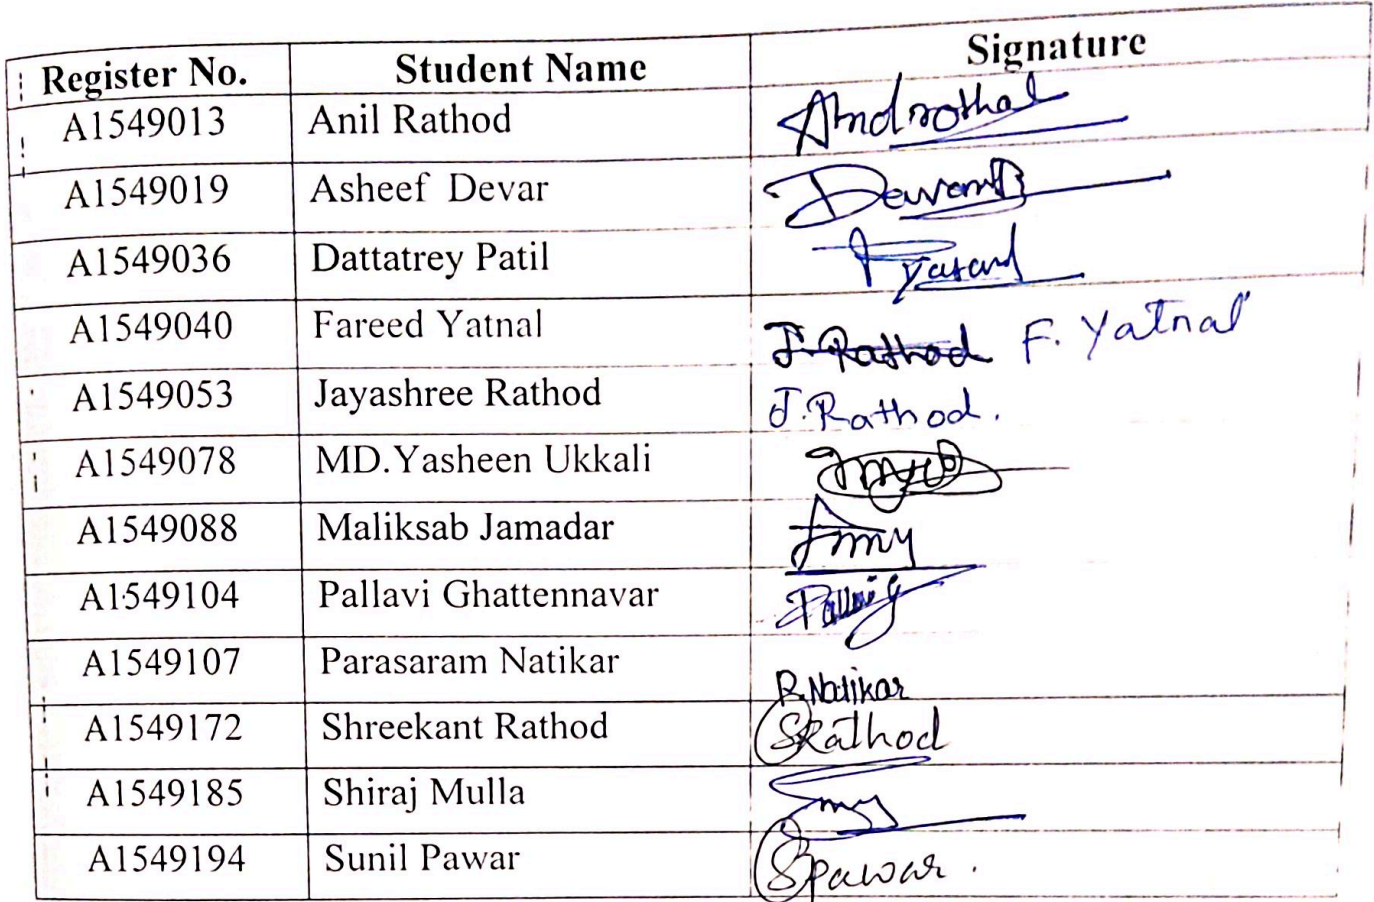 Register No. Student Name Signature
A1549013 Anil Rathod
A1549019 Asheef Devar
A1549036 Dattatrey Patil
A1549040 Fareed Yatnal J. Rathod F. Yatnal
A1549053 Jayashree Rathod J. Rathod.
A1549078 MD.Yasheen Ukkali
A1549088 Maliksab Jamadar
A1549104 Pallavi Ghattennavar
A1549107 Parasaram Natikar P. Natikar
A1549172 Shreekant Rathod SRathod
A1549185 Shiraj Mulla
A1549194 Sunil Pawar Spawar.